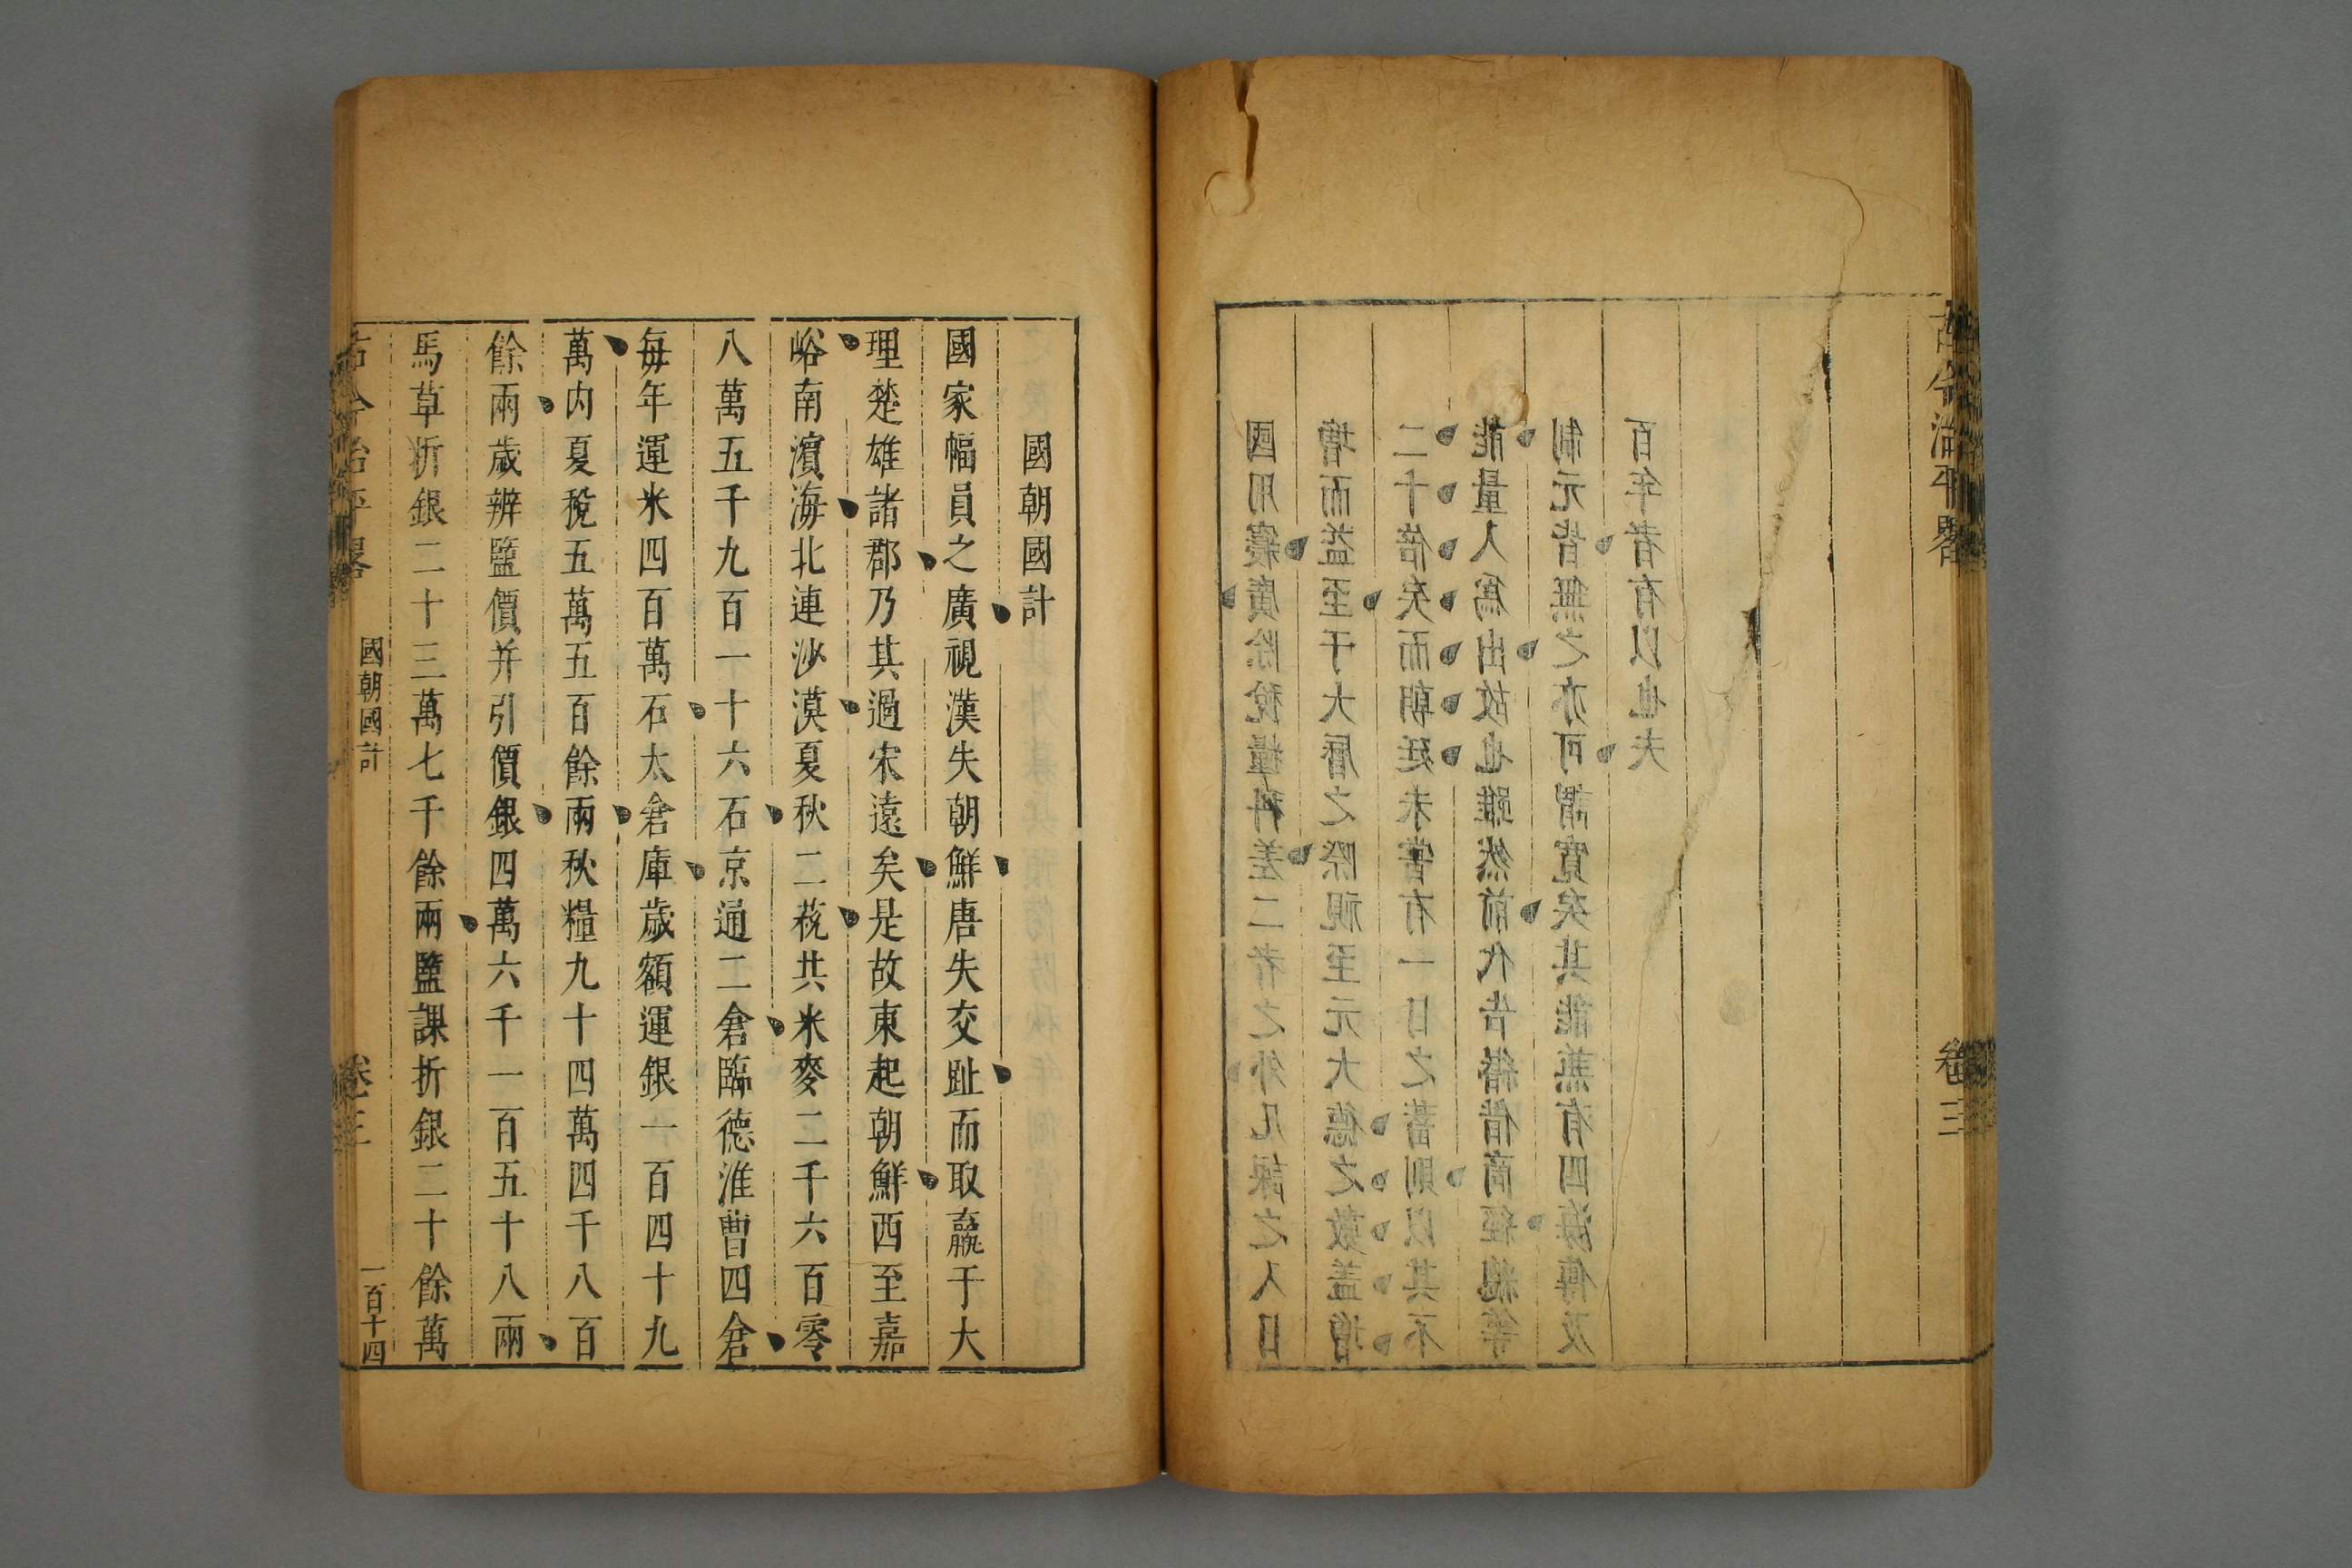 古今治平畧
卷三
國用寖廣除稅糧科差二者之外凡課之入日
增而益至于大曆之際視至元大德之數蓋增
二十倍矣而朝廷未嘗有一日之蓄則以其不
能量入爲出故也雖然前代告緡借商經總等
制元皆無之亦可謂寬矣其能兼有四海傳及
百年者有以也夫
國朝國計
國家幅員之廣視漢失朝鮮唐失交趾而取嬴于大
理楚雄諸郡乃其過宋遠矣是故東起朝鮮西至嘉
峪南濵海北連沙漠夏秋二稅共米麥二千六百零
八萬五千九百一十六石京通二倉臨德淮曹四倉
每年運米四百萬石太倉庫歲額運銀一百四十九
萬内夏稅五萬五百餘兩秋糧九十四萬四千八百
餘兩歲辦鹽價并引價銀四萬六千一百五十八兩
馬草折銀二十三萬七千餘兩鹽課折銀二十餘萬
古今治平畧
國朝國計
卷三
一百十四